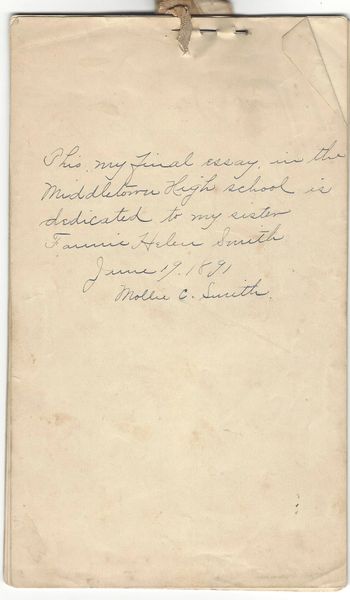 This, my final essay, in the
Middletown High school is
dedicated to my sister
Fannie Helen Smith
June 19, 1891
Mollie C. Smith.